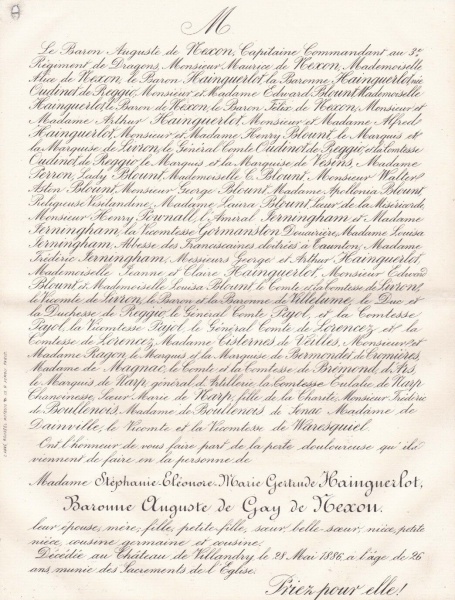 M
Le Baron Auguste de Nexon, Capitaine Commandant au 3e
Régiment de Dragons, Monsieur Maurice de Nexon, Mademoiselle
Alice de Nexon, le Baron Hainguerlot, la Baronne Hainguerlot née
Oudinot de Reggio, Monsieur et Madame Edward Blount, Mademoiselle
Hainguerlot, le Baron de Nexon, le Baron Félix de Nexon, Monsieur et
Madame Arthur Hainguerlot, Monsieur et Madame Alfred
Hainguerlot, Monsieur et Madame Henry Blount, le Marquis et
la Marquise de Livron, le Général Comte Oudinot de Reggio et la Comtesse
Oudinot de Reggio, le Marquis et la Marquise de Vesins, Madame
Perron, Lady Blount, Mademoiselle C. Blount, Monsieur Walter
Aston Blount, Monsieur George Blount, Madame Apollonia Blount,
Religieuse Visitandine, Madame Laura Blount, Sœur de la Miséricorde,
Monsieur Henry Pownall, l'Amiral Jerningham et Madame
Jerningham, la Vicomtesse Gormanston Douairière, Madame Louisa
Jerningham, Abbesse des Franciscaines cloîtrées à Taunton, Madame
Frédéric Jerningham, Messieurs George et Arthur Hainguerlot,
Mademoiselle Jeanne et Claire Hainguerlot, Monsieur Edward
Blount et Mademoiselle Louisa Blount, le Comte et la Comtesse de Livron,
le Vicomte de Livron, le Baron et la Baronne de Villelume, le Duc et
la Duchesse de Reggio, le Général Comte Pajol, et la Comtesse
Pajol, la Vicomtesse Pajol, le Général Comte de Lorencez et la
Comtesse de Lorencez, Madame Cisternes de Veilles, Monsieur et
Madame Ragon, le Marquis et la Marquise de Bermondet de Cromières,
Madame de Magnac, le Comte et la Comtesse de Brémond d'Ars,
le Marquis de Narp, général d'Artillerie, la Comtesse Eulalie de Narp
Chanoinesse, Sœur Marie de Narp, fille de la Charité, Monsieur Frédéric
de Boullenois, Madame de Boullenois de Senac, Madame de
Dainville, le Vicomte et la Vicomtesse de Waresquiel.
Ont l'honneur de vous faire part de la perte douloureuse qu'ils
viennent de faire en la personne de
Madame Stéphanie-Eléonore-Marie Gertrude Hainguerlot,
Baronne Auguste de Gay de Nexon.
leur épouse, mère, fille, petite-fille, sœur, belle-sœur, nièce, petite
nièce, cousine germaine et cousine.
Décédée au Château de Villandry le 28 Mai 1886, à l'âge de 26
ans, munie des Sacrements de l'Eglise.
Priez pour elle!